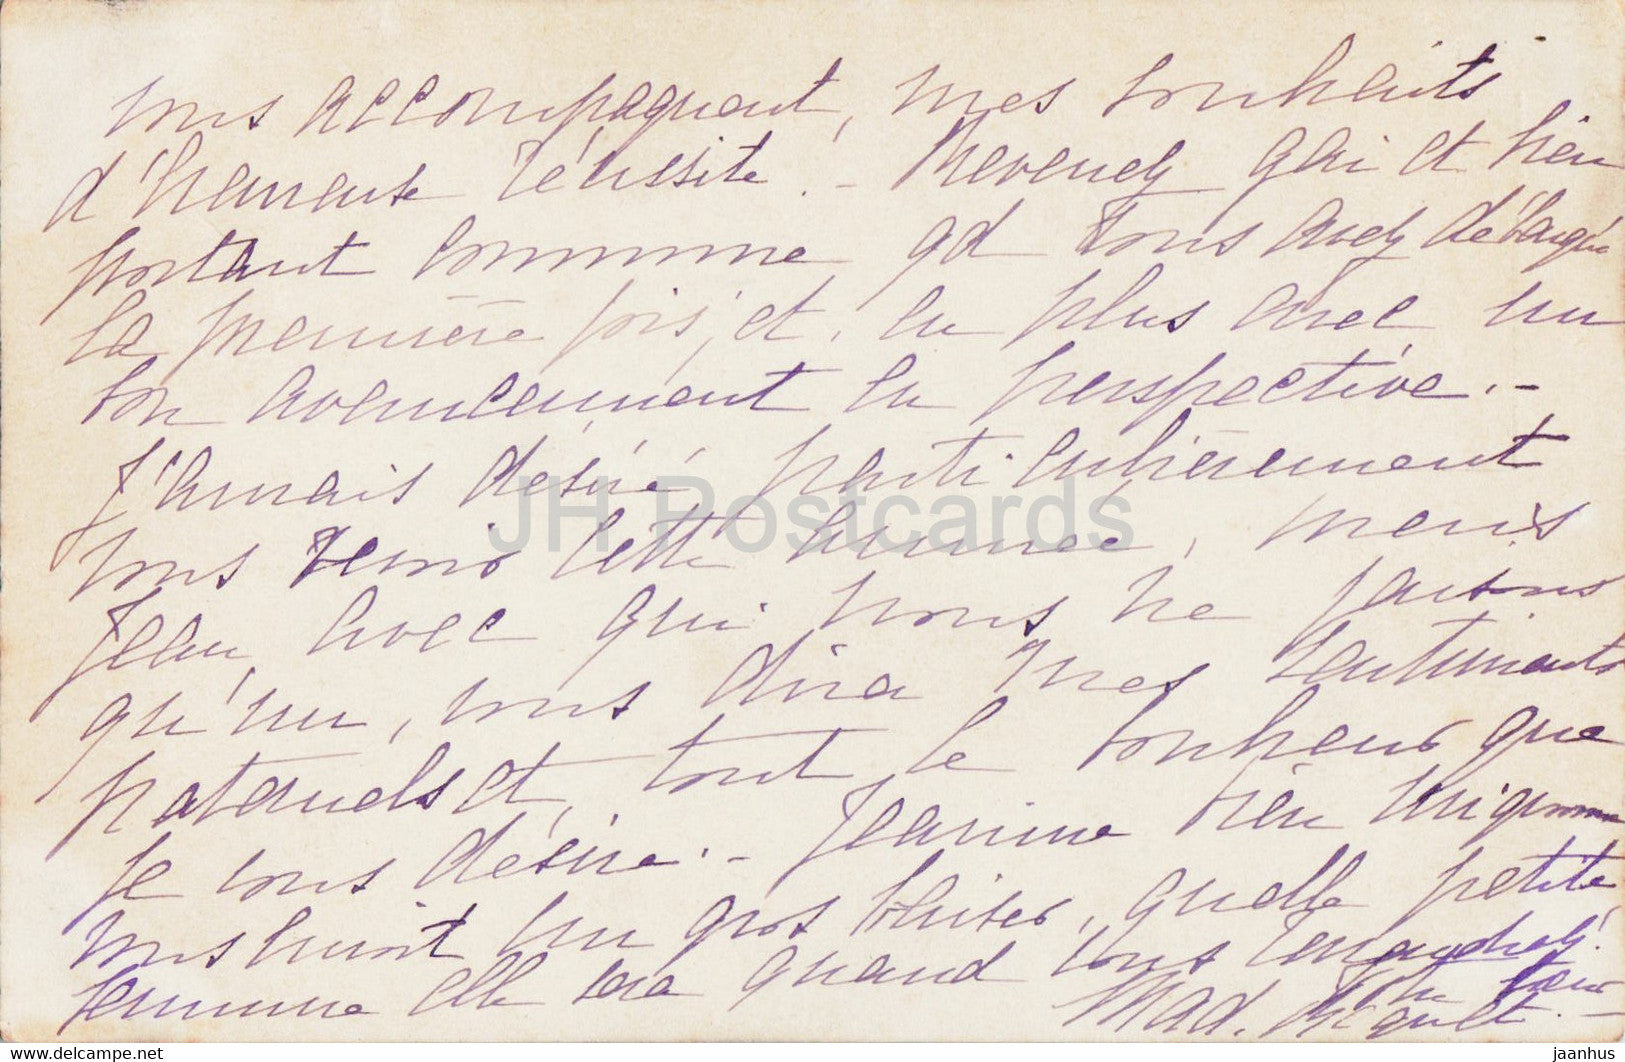 vous accompagnent, mes souhaits
d'heureuse réussite. - Revenez gai et bien
portant comme qd vous avez débarqué
la première fois, et, en plus avec un
bon avancement en perspective. -
J'aurais désiré particulièrement
vous revoir cette année, mais
Jean, avec qui nous ne faisons
qu'un, vous dira mes sentiments
paternels et, tout le bonheur que
je vous désire. - Jeanine bien mignonne
vous envoit un gros baiser, quelle petite
femme elle sera quand vous reviendrez!
Mad.
JH Postcards
jaanhus
oldthing.com